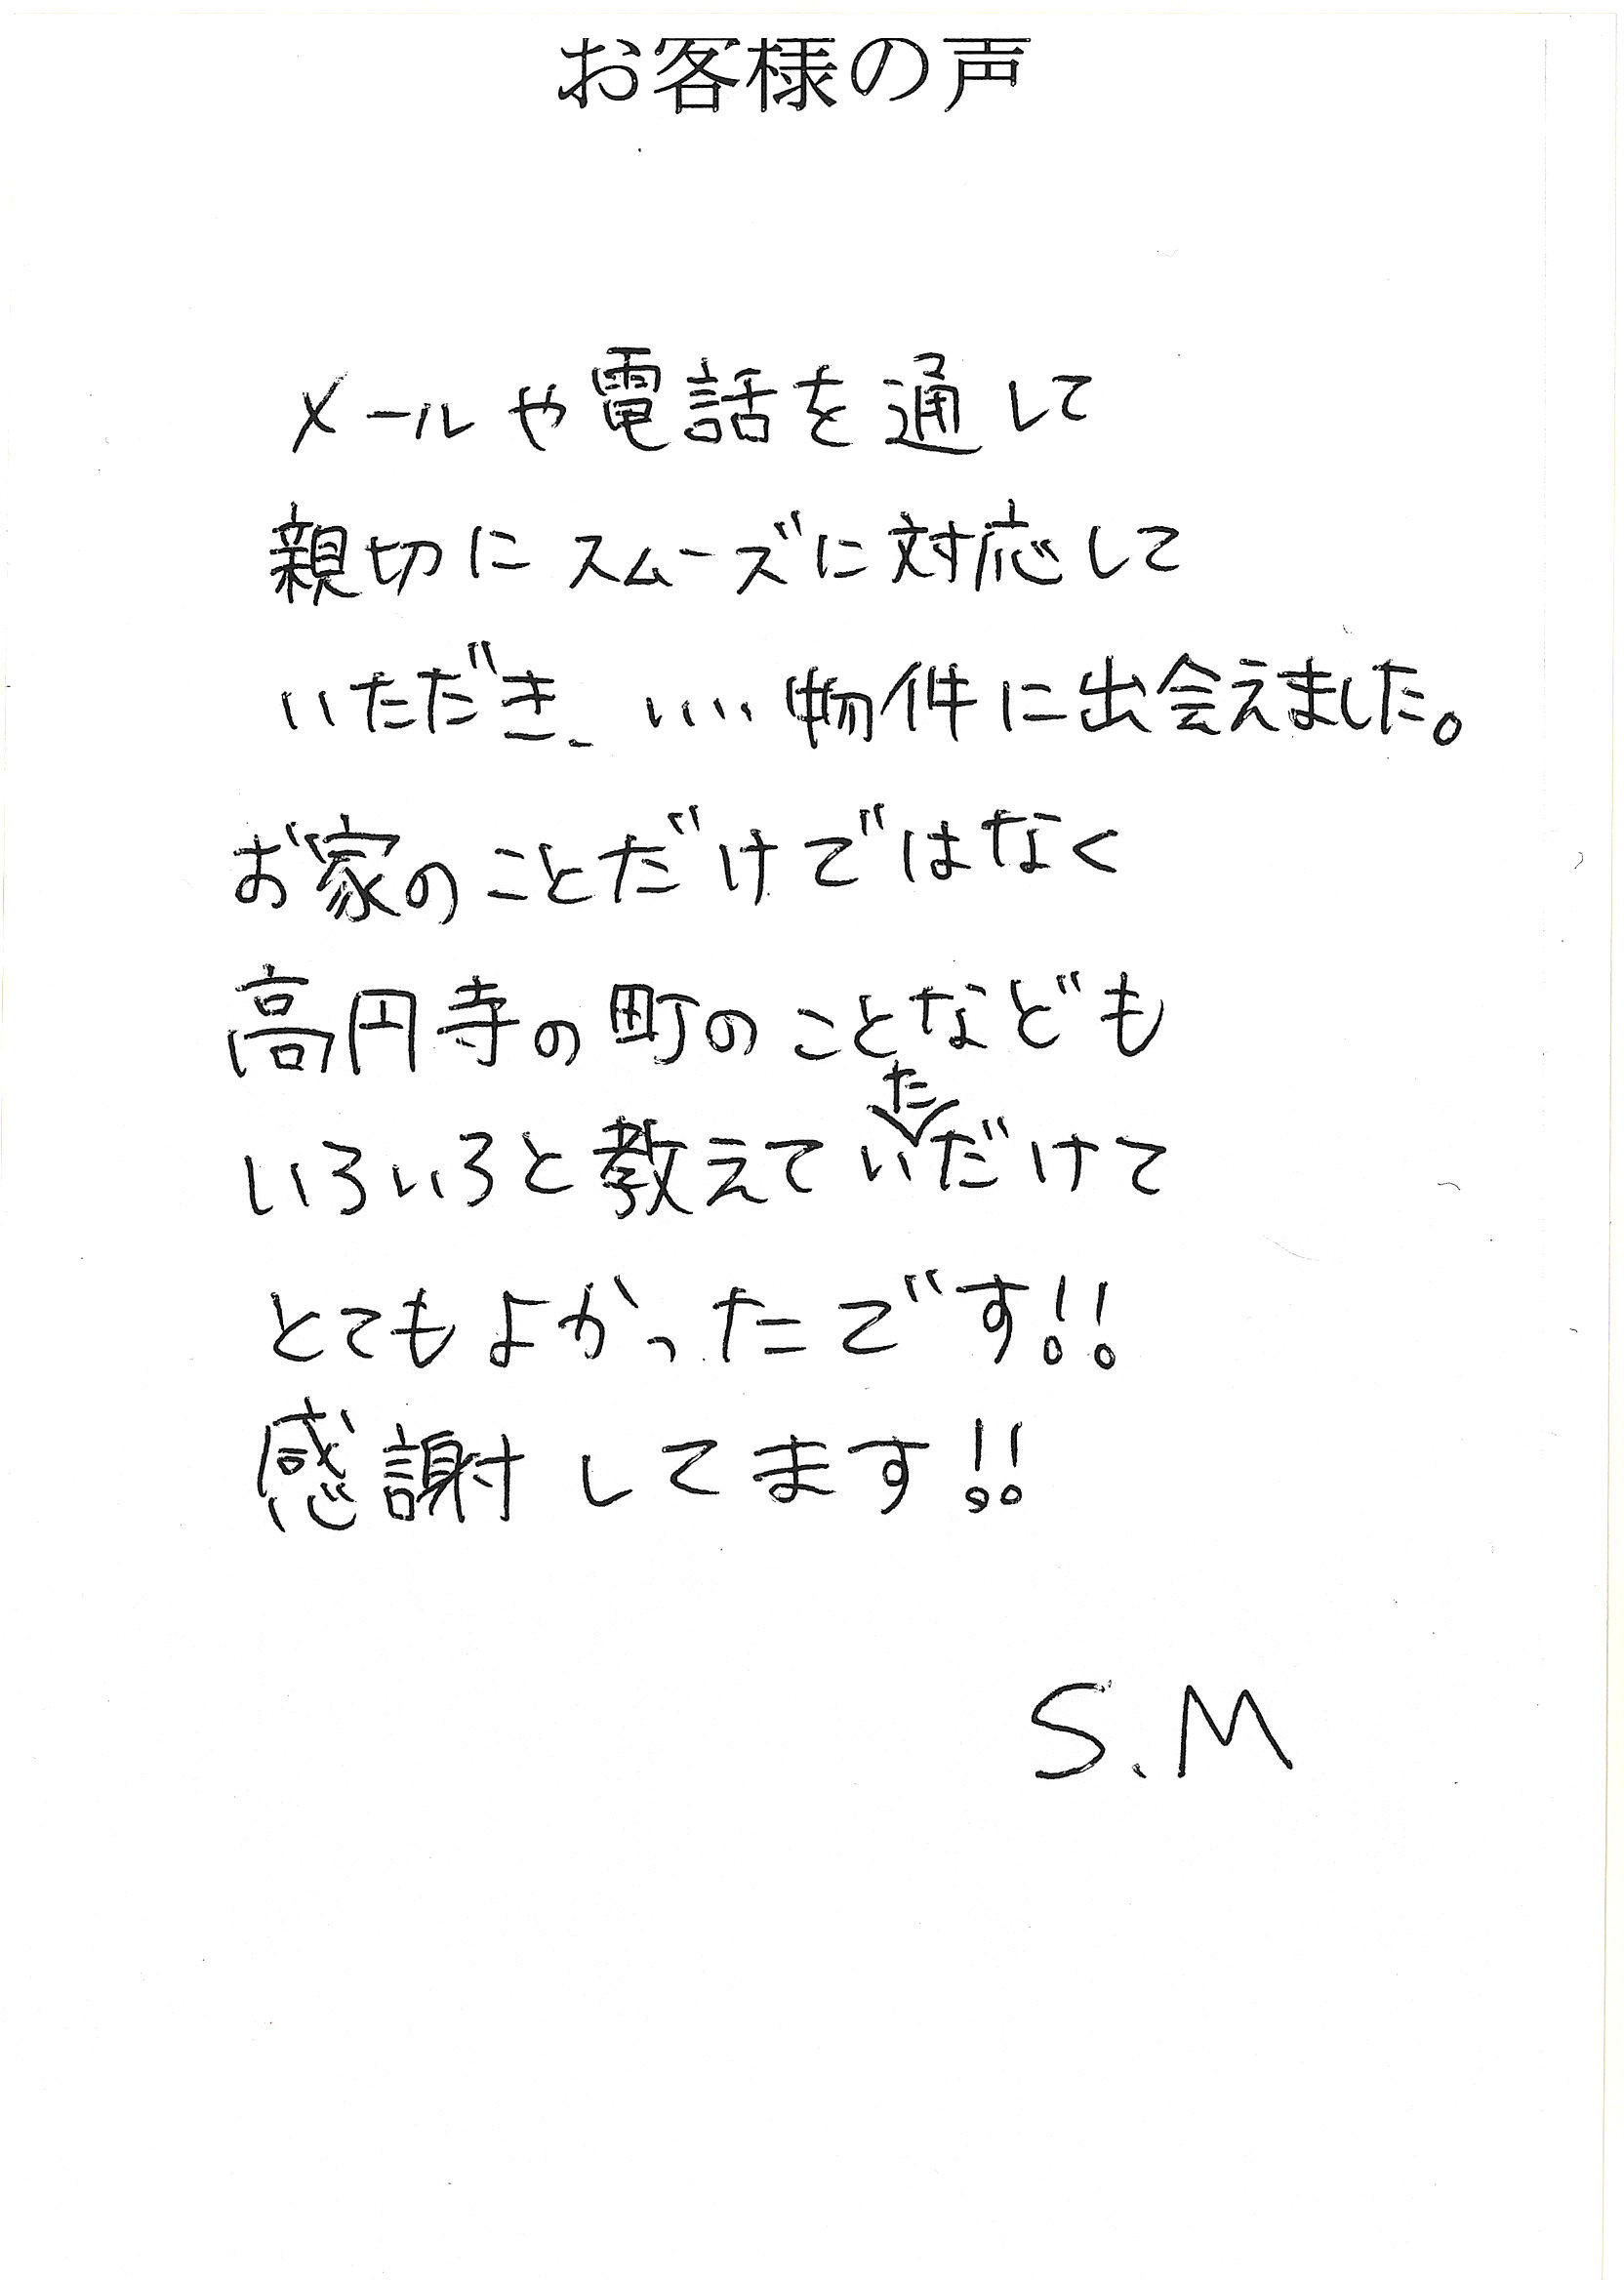 お客様の声
メールや電話を通して
親切にスムーズに対応して
いただき、いい物件に出会えました。
お家のことだけではなく
高円寺の町のことなども
いろいろと教えていただけて
とてもよかったです!!
感謝してます!!
S.M